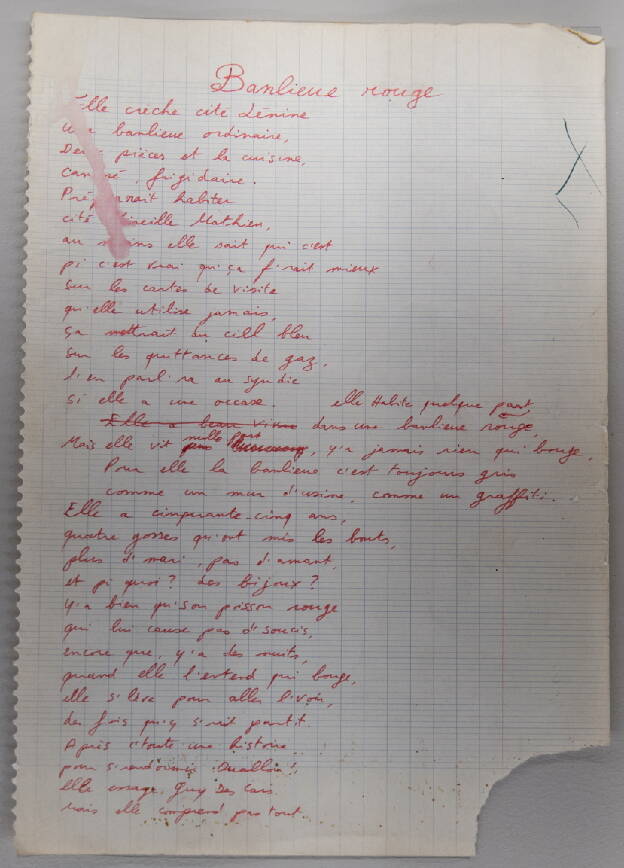 Banlieue rouge
Elle crèche cité Lénine
banlieue ordinaire,
pièces et la cuisine,
frigidaire.
habiter
cité Mireille Mathieu,
au moins elle sait qui c'est
pi c'est vrai qu'ça f'rait mieux
Sur les cartes de visite
qu'elle utilise jamais,
ça mettrait du ciel bleu
Sur les quittances de gaz,
l'en parl'ra au syndic
si elle a une occase. elle Habite quelque part
Elle a beau vivre dans une banlieue rouge,
Mais elle vit nulle part, y'a jamais rien qui bouge,
Pour elle la banlieue c'est toujours gris
comme un mur d'usine, comme un graffiti.
Elle a cinquante-cinq ans,
quatre gosses qu'ont mis les bouts,
plus d'mari, pas d'amant,
et pi quoi? des bijoux?
Y'a bien qu'son poisson rouge
qui lui cause pas d'soucis,
encore que, y'a des nuits,
quand elle l'entend qui bouge,
elle s'lève pour aller l'voir,
des fois qu'y s'rait partit.
Après c'toute une histoire
pour s'rendormir
elle essaye Guy Des Cars
mais elle comprend pas tout.